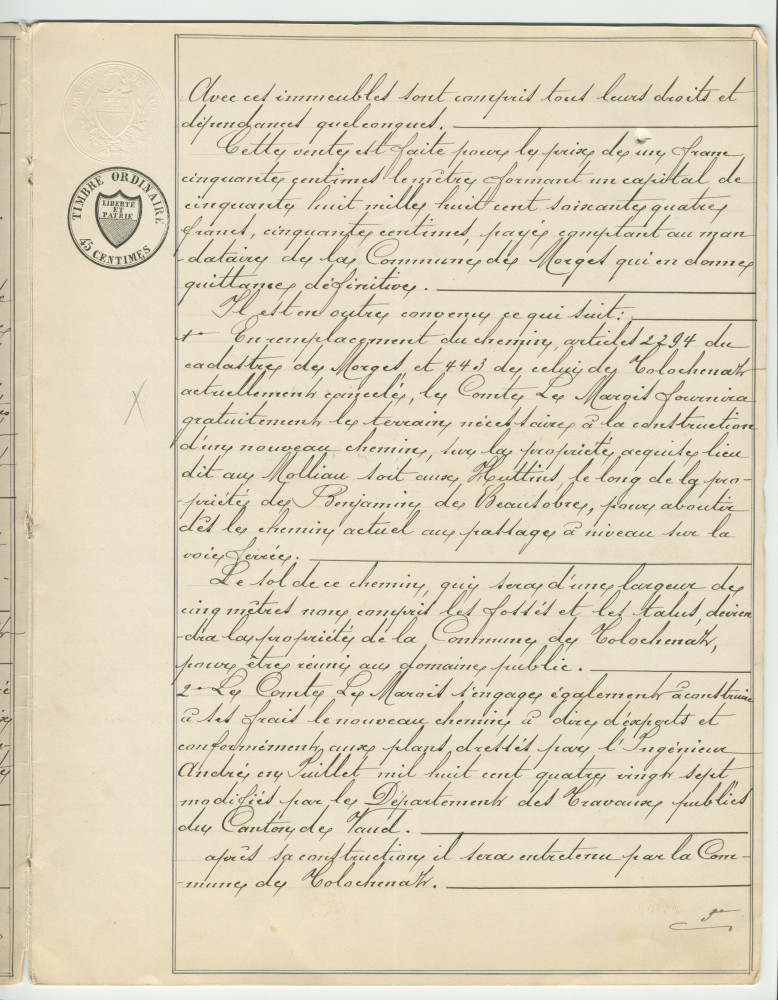 TIMBRE ORDINAIRE
LIBERTÉ
ET
PATRIE
45 CENTIMES
Avec ces immeubles sont compris tous leurs droits et
dépendances quelconques.
Cette vente est faite pour le prix de un franc
cinquante centimes le mètre formant un capital de
cinquante huit mille huit cent soixante quatre
francs, cinquante centimes, payé comptant au man
-dataire de la Commune de Morges qui en donne
quittance définitive.
Il est en outre convenu ce qui suit:
1° En remplacement du chemin, article 2294 du
cadastre de Morges, et 443 de celui de Tolochenaz
actuellement cancelé, le Comte Le Marois fournira
gratuitement le terrain nécessaire à la construction
d'un nouveau chemin, sur la propriété acquise lieu
dit au Molliau soit aux Huttins, le long de la pro-
-priété de Benjamin de Beausobre, pour aboutir
dès le chemin actuel au passage à niveau sur la
voie ferrée.
Le sol de ce chemin, qui sera d'une largeur de
cinq mètres non compris les fossés et les talus, devien
-dra la propriété de la Commune de Tolochenaz,
pour être réuni au domaine public.
2° Le Comte Le Marois s'engage également à construire
à ses frais le nouveau chemin à dire d'experts et
conformément aux plans dressés par l'Ingénieur
André en Juillet mil huit cent quatre vingt sept
modifiés par le Département des Travaux publics
du Canton de Vaud.
après sa construction il sera entretenu par la Com-
-mune de Tolochenaz.
3°